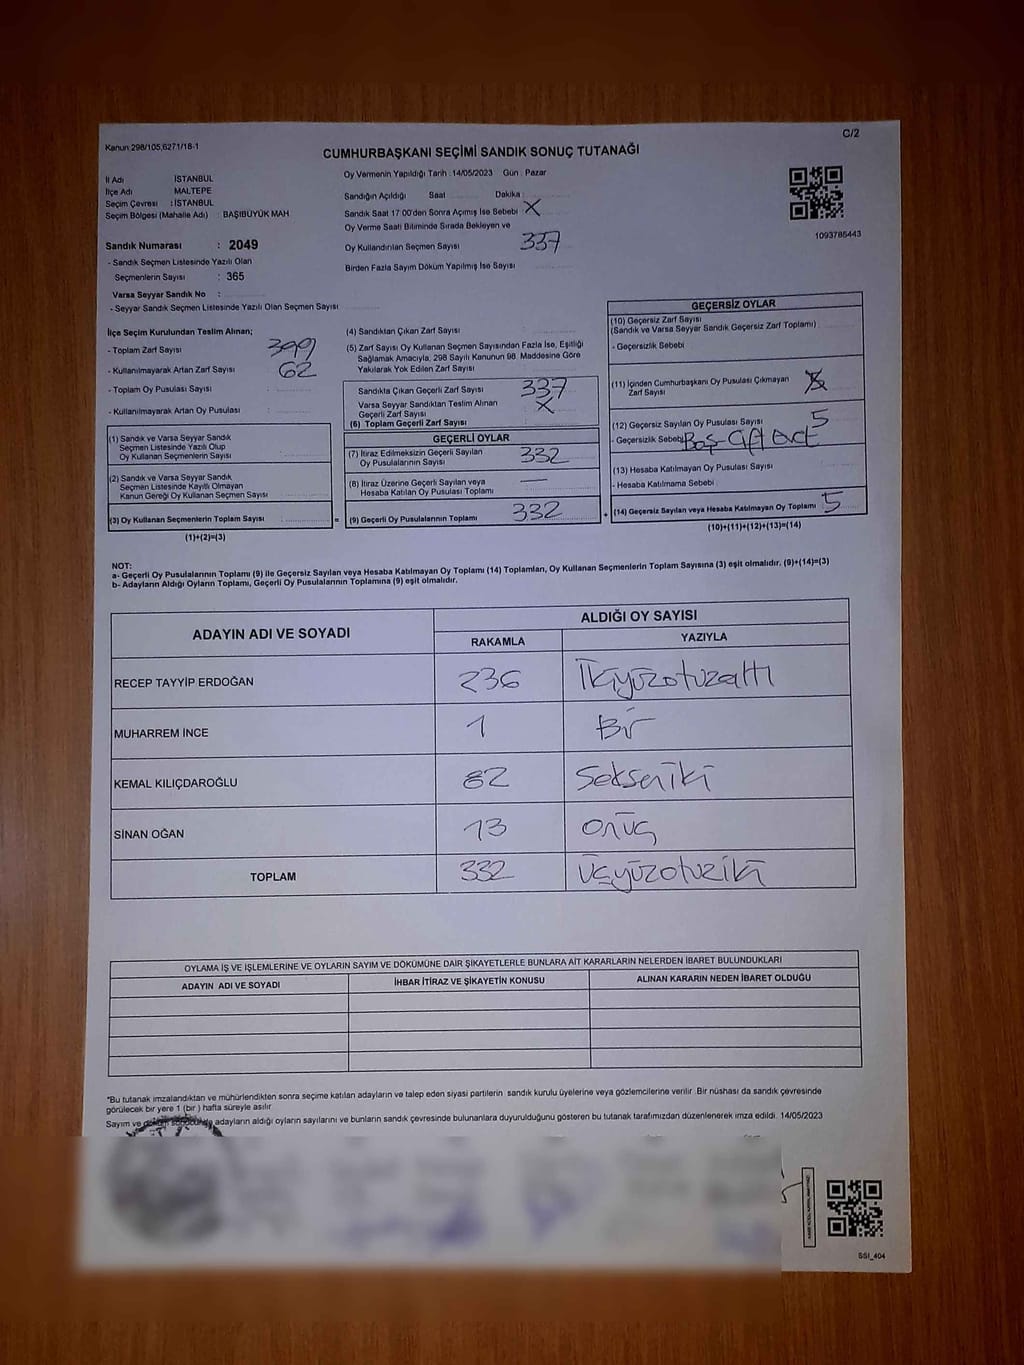 Kanun 298/105,6271/18-1
C/2
CUMHURBAŞKANI SEÇİMİ SANDIK SONUÇ TUTANAĞI
İl Adı : İSTANBUL
İlçe Adı MALTEPE
Seçim Çevresi : İSTANBUL
Seçim Bölgesi (Mahalle Adı) : BAŞIBÜYÜK MAH
Sandık Numarası : 2049
- Sandık Seçmen Listesinde Yazılı Olan
Seçmenlerin Sayısı : 365
Varsa Seyyar Sandık No :
- Seyyar Sandık Seçmen Listesinde Yazılı Olan Seçmen Sayısı
Oy Vermenin Yapıldığı Tarih : 14/05/2023 Gün : Pazar
Sandığın Açıldığı Saat Dakika :
Sandık Saat 17:00'den Sonra Açımış İse Sebebi X
Oy Verme Saati Bitiminde Sırada Bekleyen ve
Oy Kullandırılan Seçmen Sayısı 337
Birden Fazla Sayım Döküm Yapılmış İse Sayısı
1093785443
İlçe Seçim Kurulundan Teslim Alınan;
- Toplam Zarf Sayısı 399
- Kullanılmayarak Artan Zarf Sayısı 62
- Toplam Oy Pusulası Sayısı
- Kullanılmayarak Artan Oy Pusulası
(1) Sandık ve Varsa Seyyar Sandık
Seçmen Listesinde Yazılı Olup
Oy Kullanan Seçmenlerin Sayısı
(2) Sandık ve Varsa Seyyar Sandık
Seçmen Listesinde Kayıtlı Olmayan
Kanun Gereği Oy Kullanan Seçmen Sayısı
(3) Oy Kullanan Seçmenlerin Toplam Sayısı
(1)+(2)=(3)
(4) Sandıktan Çıkan Zarf Sayısı
(5) Zarf Sayısı Oy Kullanan Seçmen Sayısından Fazla İse, Eşitliği
Sağlamak Amacıyla, 298 Sayılı Kanunun 98. Maddesine Göre
Yakılarak Yok Edilen Zarf Sayısı
Sandıkta Çıkan Geçerli Zarf Sayısı 337
Varsa Seyyar Sandıktan Teslim Alınan
Geçerli Zarf Sayısı X
(6) Toplam Geçerli Zarf Sayısı
GEÇERLİ OYLAR
(7) İtiraz Edilmeksizin Geçerli Sayılan
Oy Pusulalarının Sayısı 332
(8) İtiraz Üzerine Geçerli Sayılan veya
Hesaba Katılan Oy Pusulası Toplamı —
= (9) Geçerli Oy Pusulalarının Toplamı 332 +
GEÇERSİZ OYLAR
(10) Geçersiz Zarf Sayısı
(Sandık ve Varsa Seyyar Sandık Geçersiz Zarf Toplamı)
- Geçersizlik Sebebi
(11) İçinden Cumhurbaşkanı Oy Pusulası Çıkmayan
Zarf Sayısı
(12) Geçersiz Sayılan Oy Pusulası Sayısı 5
- Geçersizlik Sebebi Boş-Çift Evet
(13) Hesaba Katılmayan Oy Pusulası Sayısı
- Hesaba Katılmama Sebebi
(14) Geçersiz Sayılan veya Hesaba Katılmayan Oy Toplamı 5
(10)+(11)+(12)+(13)=(14)
NOT:
a- Geçerli Oy Pusulalarının Toplamı (9) ile Geçersiz Sayılan veya Hesaba Katılmayan Oy Pusulası Toplamı (14) Toplamları, Oy Kullanan Seçmenlerin Toplam Sayısına (3) eşit olmalıdır. (9)+(14)=(3)
b- Adayların Aldığı Oyların Toplamı, Geçerli Oy Pusulalarının Toplamına (9) eşit olmalıdır.
ADAYIN ADI VE SOYADI
ALDIĞI OY SAYISI
RAKAMLA YAZIYLA
RECEP TAYYİP ERDOĞAN 236 İkiyüzotuzaltı
MUHARREM İNCE 1 Bir
KEMAL KILIÇDAROĞLU 82 Sekseniki
SİNAN OĞAN 13 Onüç
TOPLAM 332 Üçyüzotuziki
OYLAMA İŞ VE İŞLEMLERİNE VE OYLARIN SAYIM VE DÖKÜMÜNE DAİR ŞİKAYETLERLE BUNLARA AİT KARARLARIN NELERDEN İBARET BULUNDUKLARI
ADAYIN ADI VE SOYADI İHBAR İTİRAZ VE ŞİKAYETİN KONUSU ALINAN KARARIN NEDEN İBARET OLDUĞU
*Bu tutanak imzalandıktan ve mühürlendikten sonra seçime katılan adayların ve talep eden siyasi partilerin sandık kurulu üyelerine veya gözlemcilerine verilir. Bir nüshası da sandık çevresinde
görülecek bir yere 1 (bir) hafta süreyle asılır
Sayım ve döküm sonucunda adayların aldığı oyların sayılarını ve bunların sandık çevresinde bulunanlara duyurulduğunu gösteren bu tutanak tarafımızdan düzenlenerek imza edildi. 14/05/2023
SSI_404